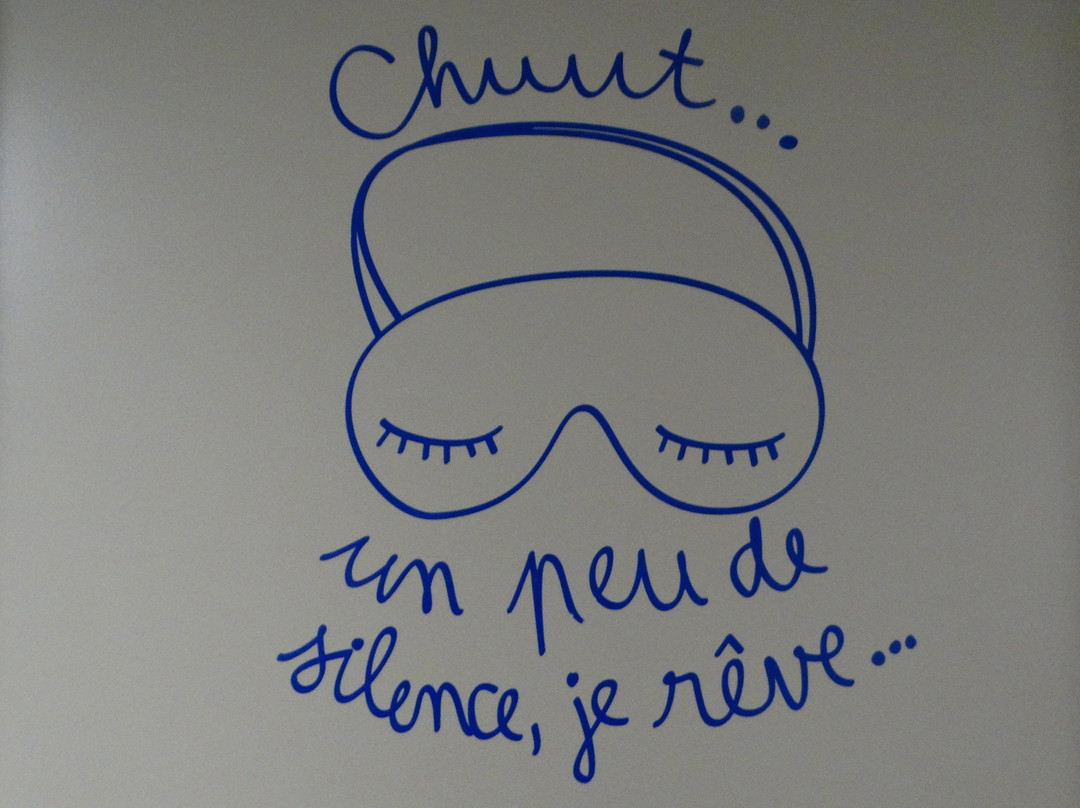 Chuuut...
un peu de
silence, je rêve...